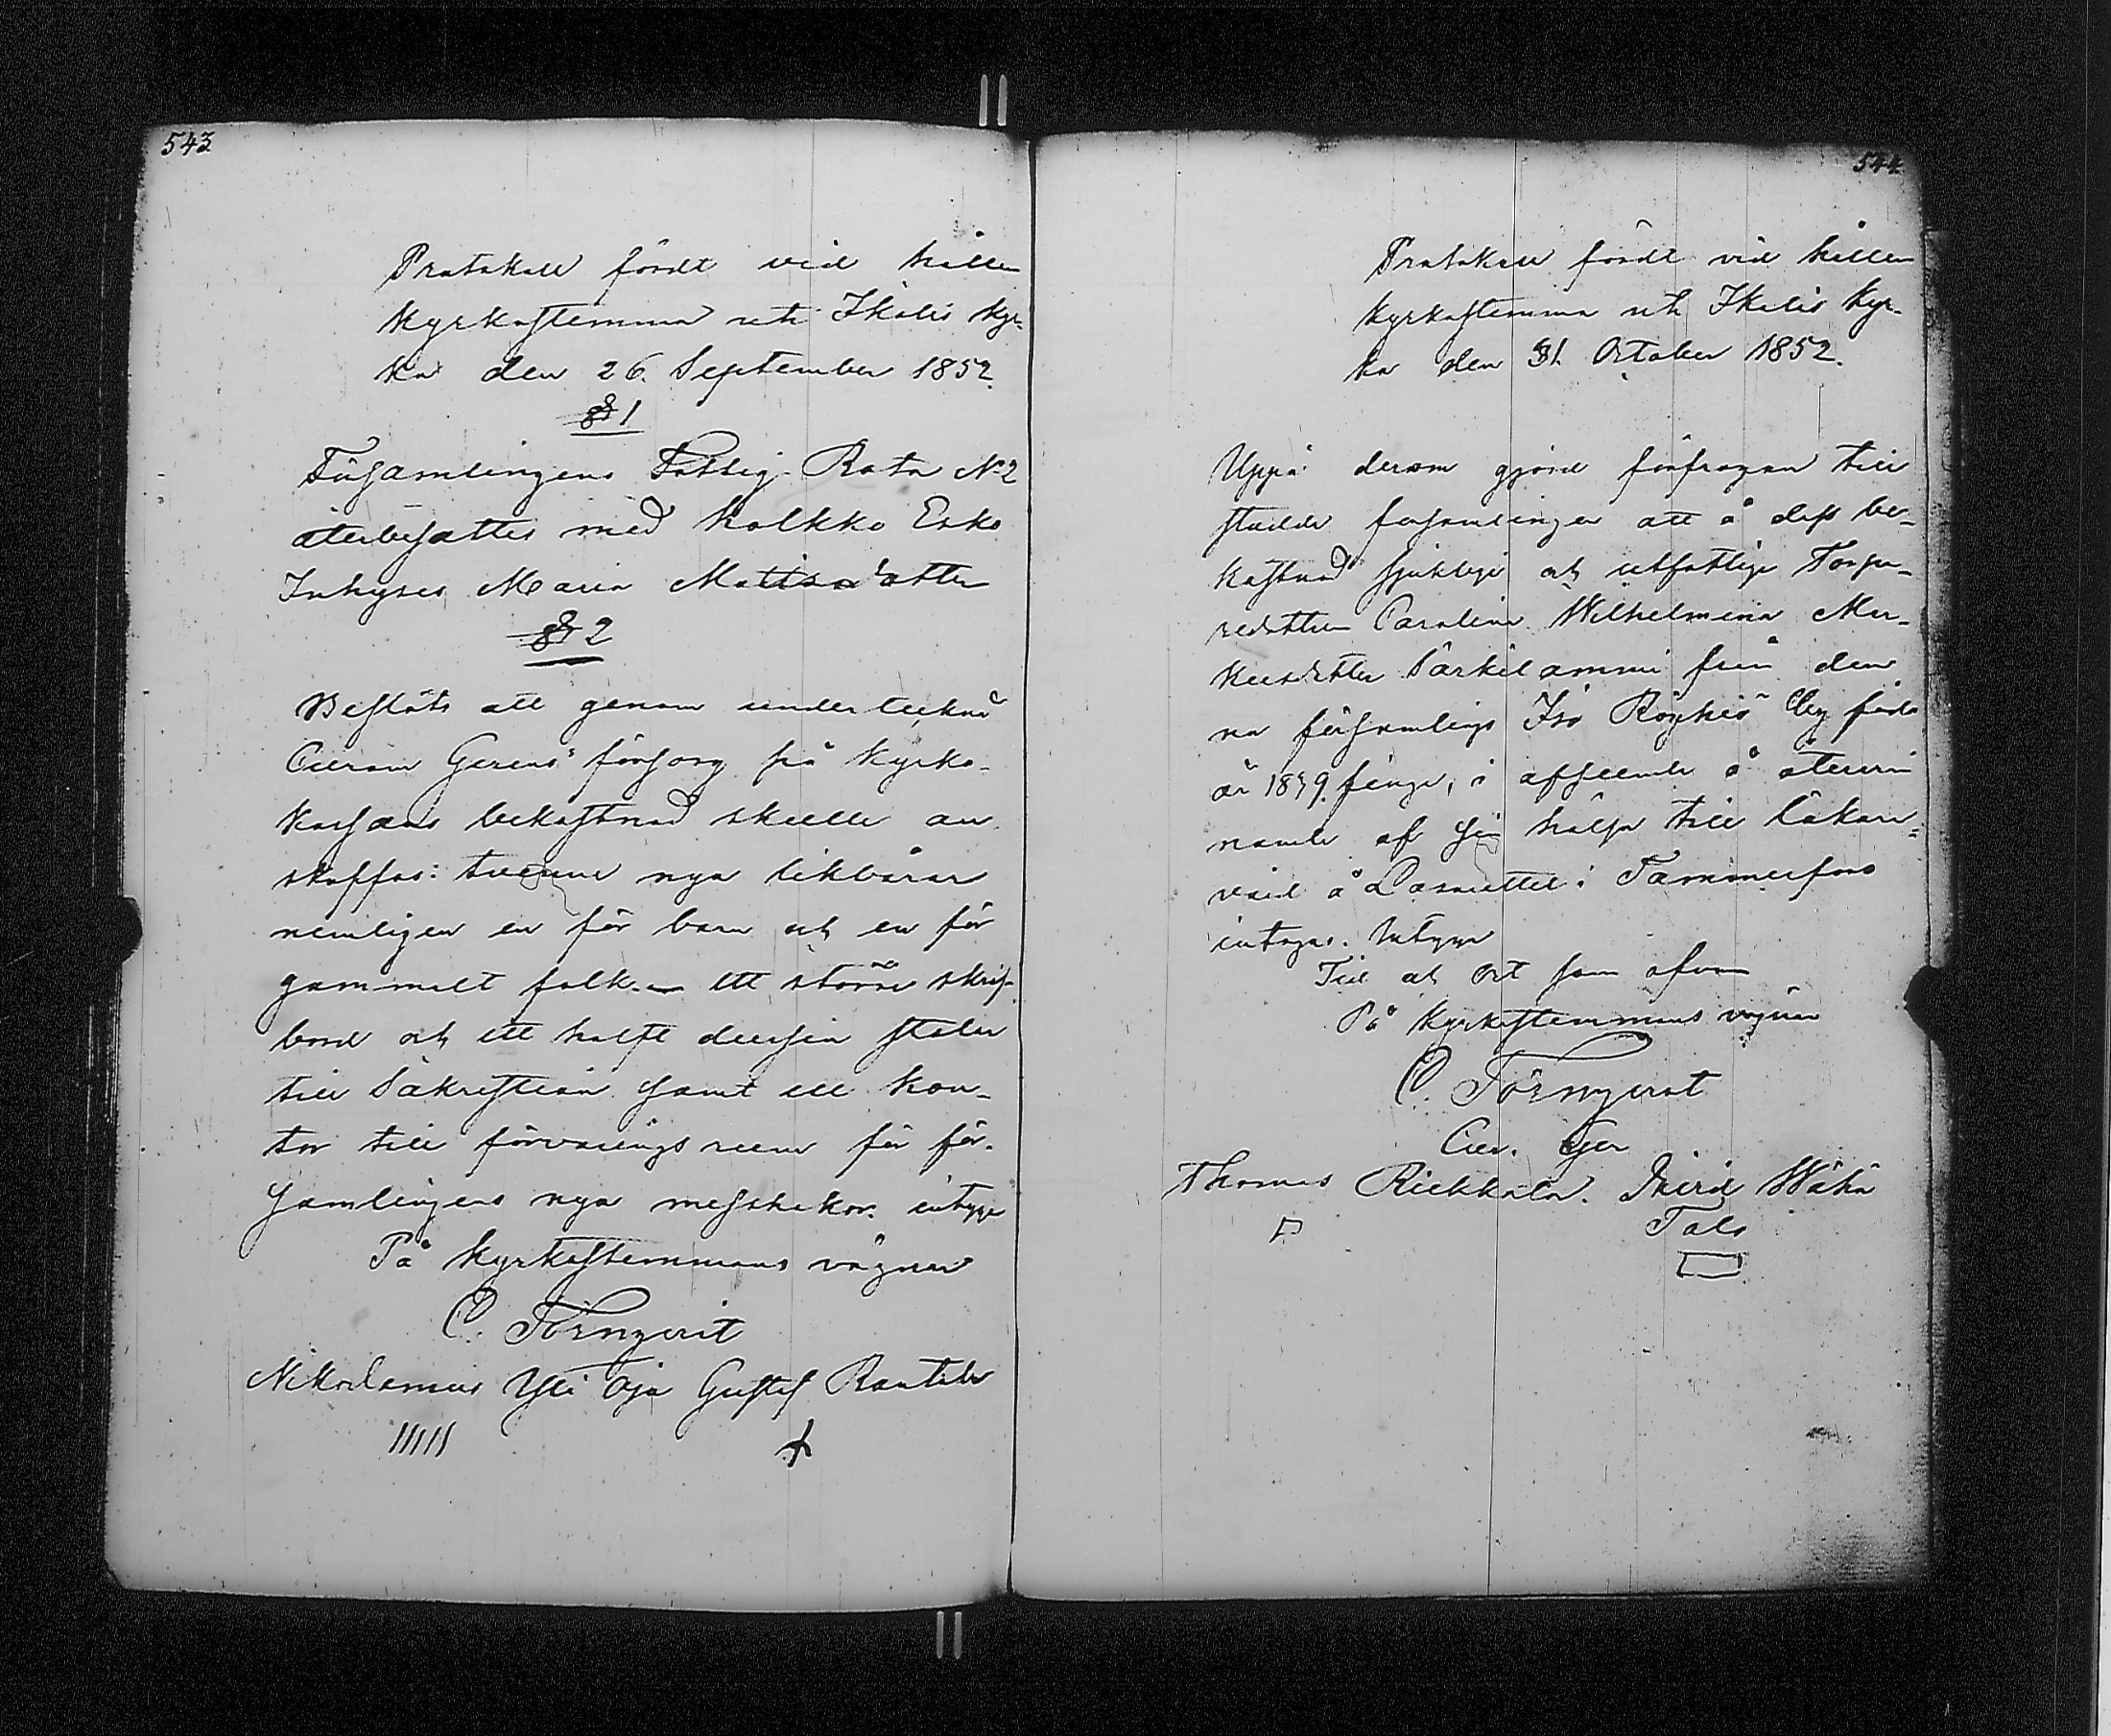 543
Protokoll fördt vid hållen
Kyrkostemma uti Ikalis Kyr-
ka den 26. September 1852.
§ 1
Församlingens Fattig Rota No 2
återbesattes med Kolkko Esko
Inhyses Maria Mattsdotter
§ 2
Beslöts att genom undertecknad
Curam Gerens försorg på Kyrko-
Kassans bekostnad skulle an-
skaffas: tvenne nya likbårar
nemligen en för barn och en för
gammalt folk. ett större skrif-
bord och ett halft dussin stolar
till Sakristian samt ett Kon-
tor till förvarings rum för för-
samlingens nya messhakar. intyga
På Kyrkostemmans vägnar
C. Törnqvist
Nikodemus Yli Oja Gustaf Rantala
544
Protokoll fördt vid hållen
Kyrkostemma uti Ikalis Kyr-
ka den 31. October 1852.
Uppå derom gjord förfrågan till
stadde församlingen att å dess be-
kostnad sjuklige och utfattige Torpa-
redottren Carolina Wilhelmina Mar-
kusdotter Särkilammi från den-
na församlings Iso Röyhiö By född
år 1839. finge, i afseende å återvin
nande af sin hälsa till läkare-
vård å Lasarettet i Tammerfors
intagas. Intyga
Tid och Ort som ofvan
På Kyrkostemmans vägnar
C. Törnqvist
Cur. Ger
Thomas Riekkala. David Wähä
Talo